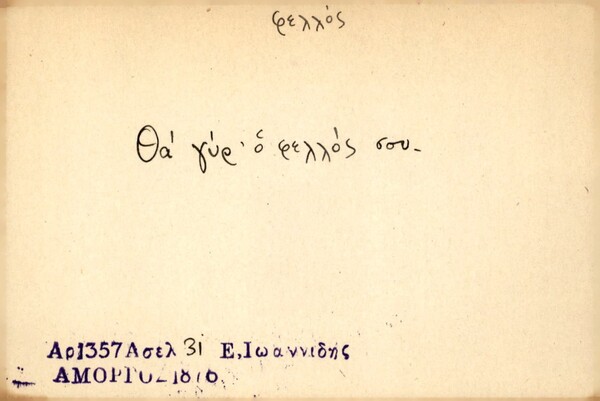 φελλός
Θά γύρ' ὁ φελλός σου.
Αρ1357Ασελ 31 Ε,Ιωαννιδής
ΑΜΟΡΓΟΣ 1876